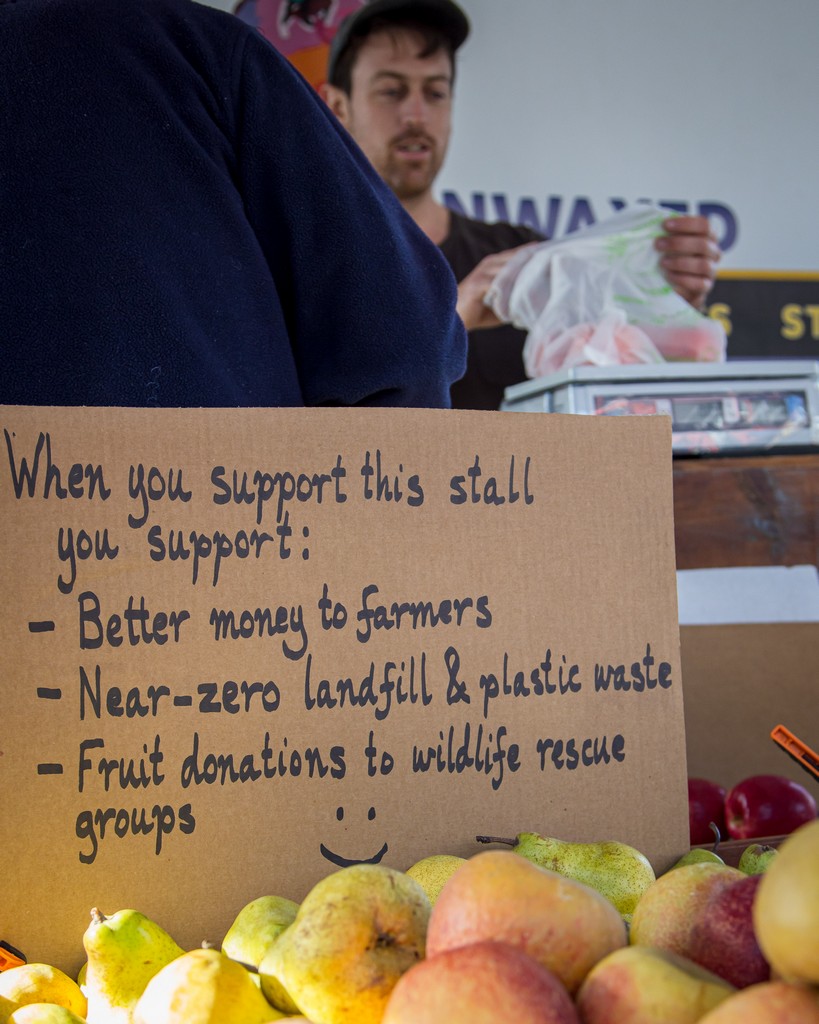 NWAXED
S ST
When you support this stall
you support:
- Better money to farmers
- Near-zero landfill & plastic waste
- Fruit donations to wildlife rescue
groups